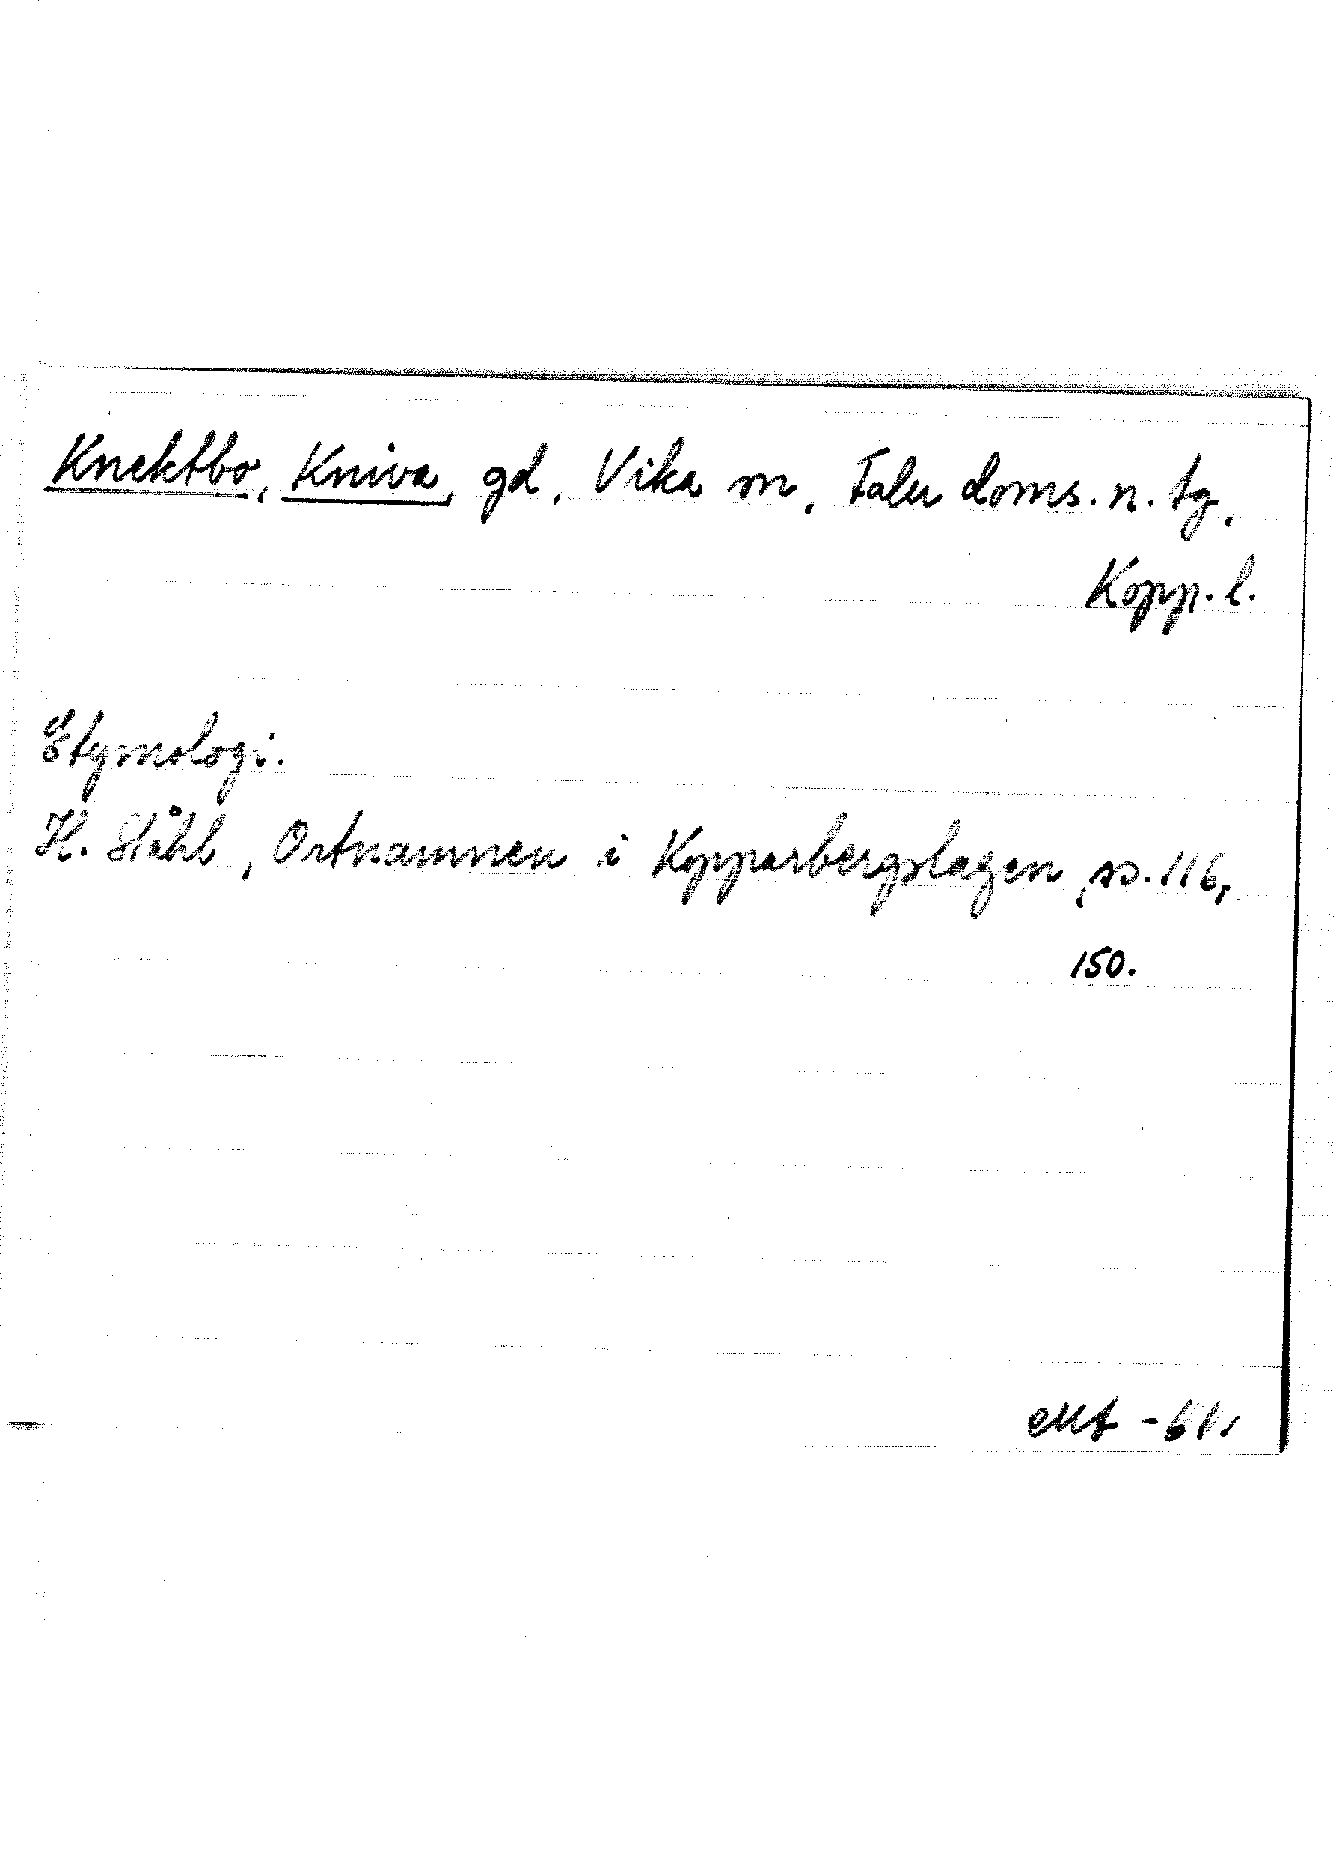 Knektbo, Kniva, gd, Vika sn, Falu doms. n. tg,
Kopp. l.
Etymologi.
H. Ståhl, Ortnamnen i Kopparbergslagen, ss. 116,
150.
-61.